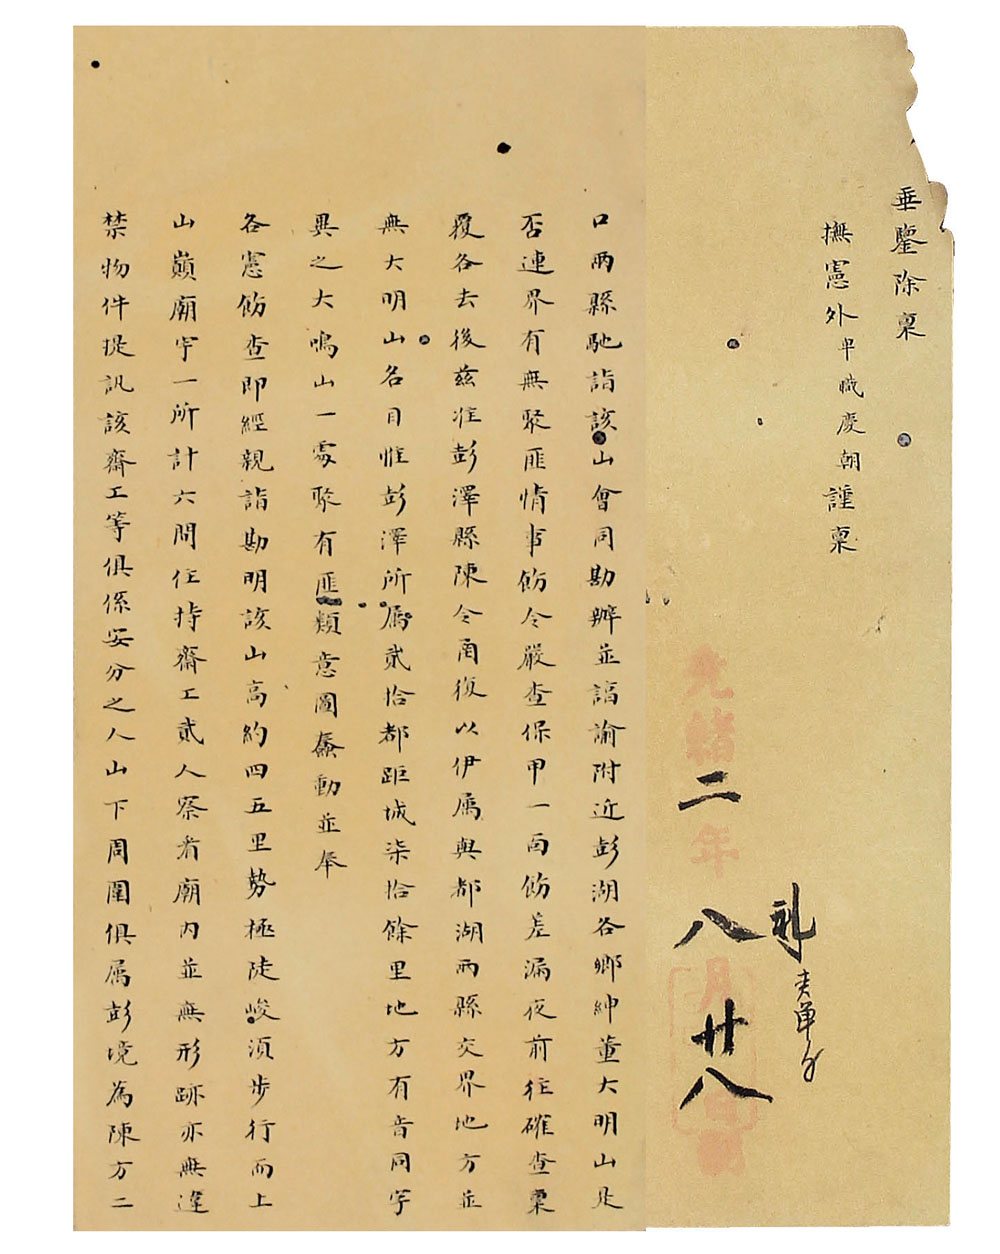 垂鑒除稟
撫憲外卑職慶朝謹稟
光緒二年八月廿八日
礼
口兩縣馳詣該山會同勘辦並諭附近彭湖各鄉紳董大明山是
否連界有無聚匪情事飭令嚴查保甲一面飭差漏夜前往確查稟
覆各去後茲准彭澤縣陳令函復以伊屬與都湖兩縣交界地方並
無大明山名目惟彭澤所屬貳拾都距城柒拾餘里地方有音同字
異之大鳴山一處聚有匪類意圖蠢動並奉
各憲飭查即經親詣勘明該山高約四五里勢極陡峻須步行而上
山巔廟宇一所計六間住持齋工貳人察看廟內並無形跡亦無違
禁物件提訊該齋工等俱係安分之人山下周圍俱屬彭境為陳方二